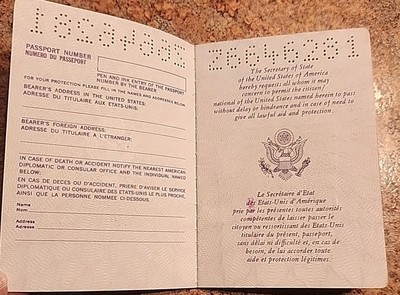 PASSPORT NUMBER
NUMÉRO DU PASSEPORT
PEN AND INK ENTRY OF THE PASSPORT
NUMBER BY THE BEARER
FOR YOUR PROTECTION PLEASE FILL IN THE NAMES AND ADDRESSES BELOW.
BEARER'S ADDRESS IN THE UNITED STATES:
ADRESSE DU TITULAIRE AUX ETATS-UNIS:
BEARER'S FOREIGN ADDRESS:
ADRESSE DU TITULAIRE A L'ETRANGER:
IN CASE OF DEATH OR ACCIDENT NOTIFY THE NEAREST AMERICAN
DIPLOMATIC OR CONSULAR OFFICE AND THE INDIVIDUAL NAMED
BELOW:
EN CAS DE DECES OU D'ACCIDENT, PRIERE D'AVISER LE SERVICE
DIPLOMATIQUE OU CONSULAIRE DES ETATS-UNIS LE PLUS PROCHE,
AINSI QUE LA PERSONNE NOMMEE CI-DESSOUS.
Name
Nom
Address
Adresse
The Secretary of State
of the United States of America
hereby requests all whom it may
concern to permit the citizen/
national of the United States named herein to pass
without delay or hindrance and in case of need to
give all lawful aid and protection.
Le Secrétaire d'Etat
des Etats-Unis d'Amérique
prie par les présentes toutes autorités
compétentes de laisser passer le
citoyen ou ressortissant des Etats-Unis
titulaire du présent passeport,
sans délai ni difficulté et, en cas de
besoin, de lui accorder toute
aide et protection légitimes.